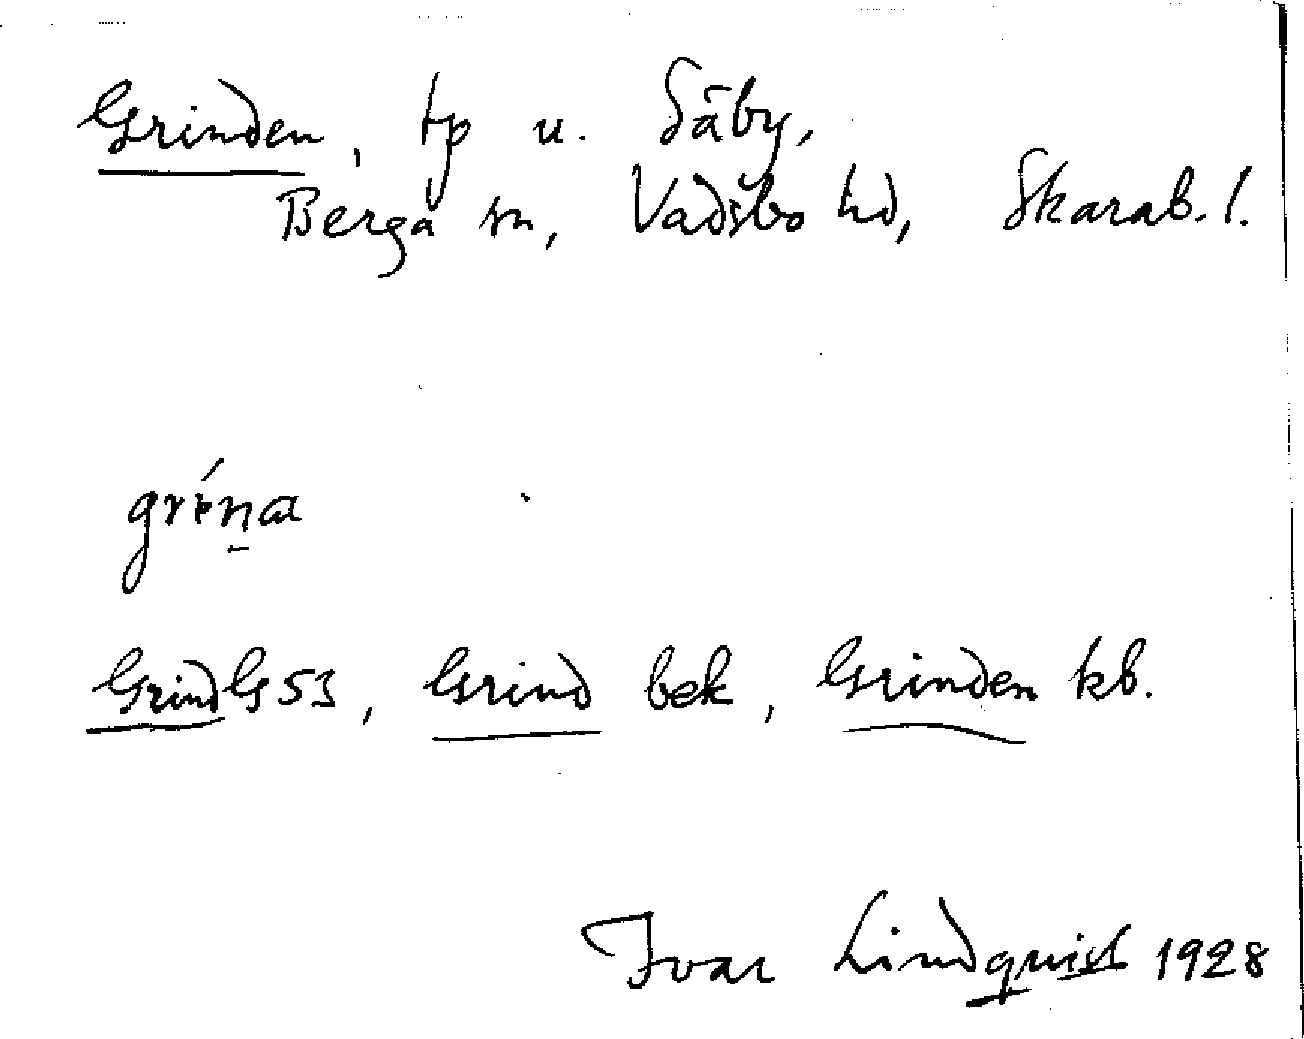 Grinden, tp u. Säby,
Berga sn, Vadsbo hd, Skarab. l.
gréna
Grind G53, Grind bek, Grinden kb.
Ivar Lindquist 1928